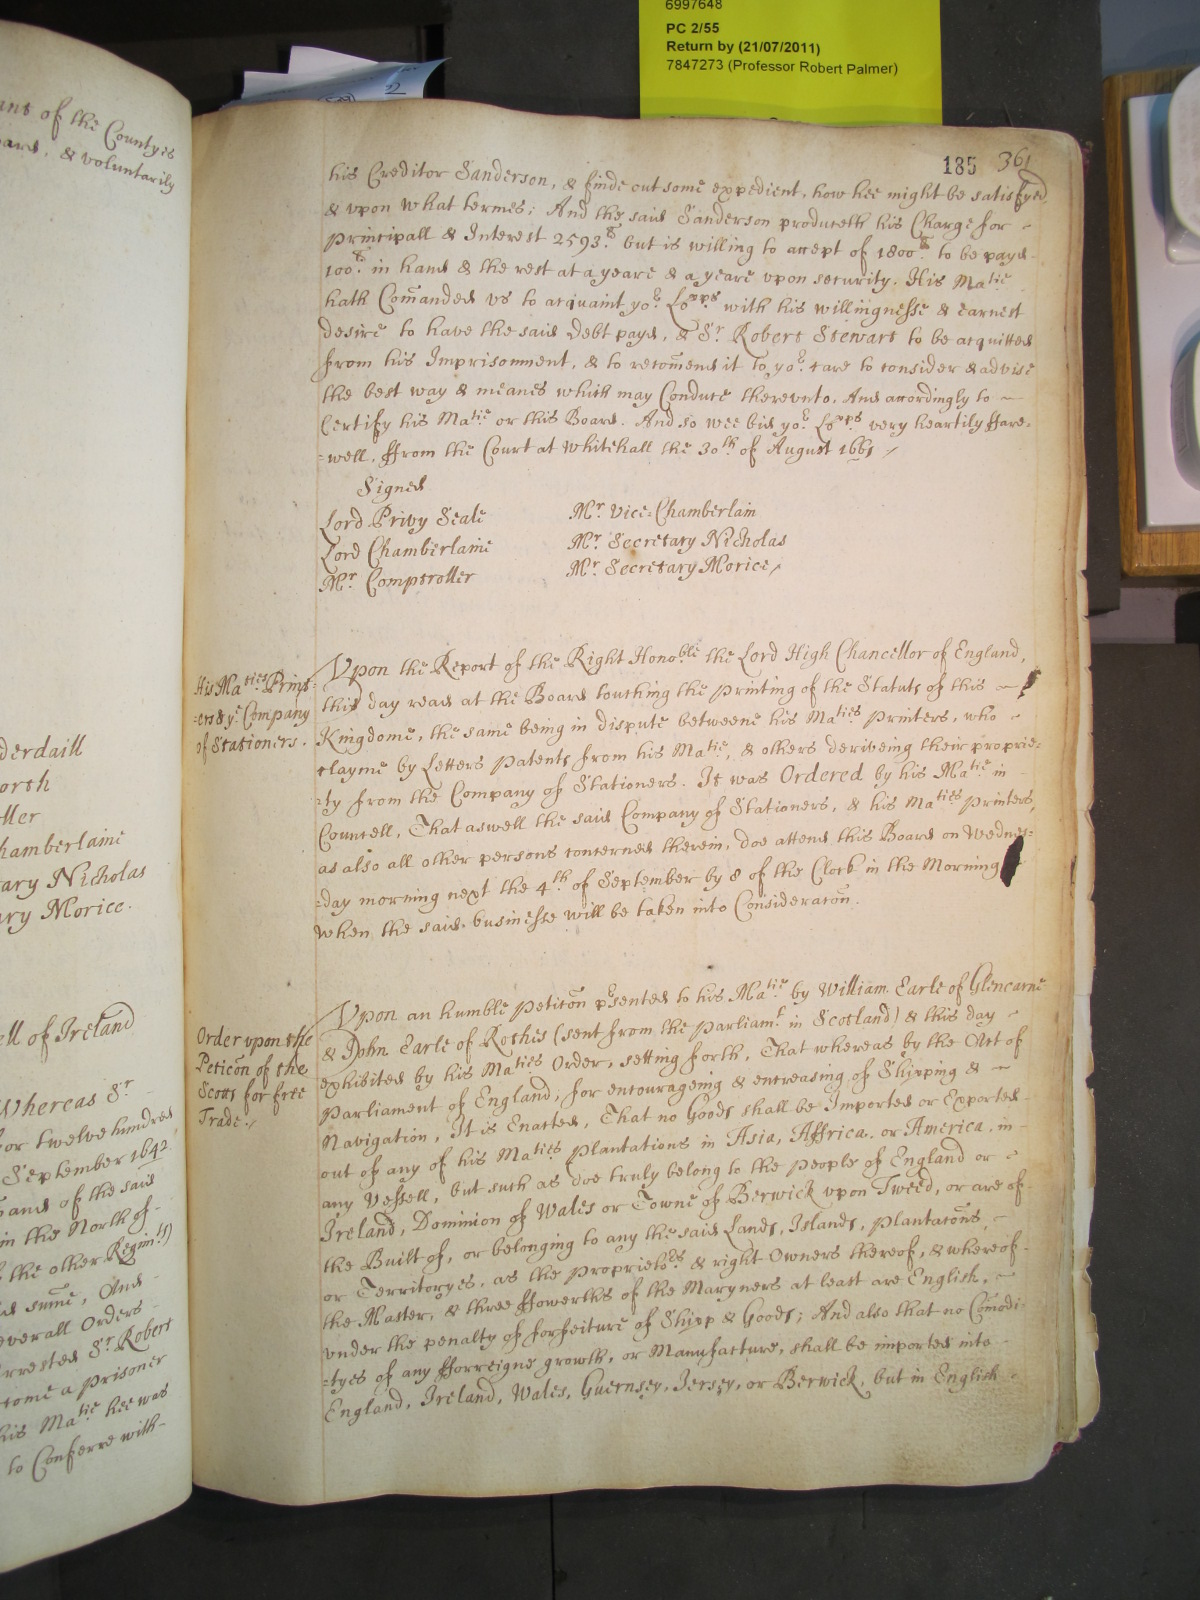 6997648
PC 2/55
Return by (21/07/2011)
7847273 (Professor Robert Palmer)
of the Countyes
& voluntarily
derdaill
orth
ller
hamberlaine
ary Nicholas
ry Morice.
ell of Ireland
Whereas Sr
or twelve hundred
September 1642
and of the said
in the North of
the other Regimts)
sume, And
everall Orders
rrested Sr Robert
come a prisoner
his Matie hee was
to Conferre with
185 361
his Creditor Sanderson, & finde out some expedient, how hee might be satisfyed,
& vpon what termes; And the said Sanderson produceth his Charge for
principall & Interest 2593.li but is willing to accept of 1800li to be payd
100li in hand & the rest at a yeare & a yeare vpon security. His Matie
hath Comanded vs to acquaint yor Lopps with his willingnesse & earnest
desire to have the said Debt payd, & Sr Robert Stewart to be acquitted
from his Imprisonment, & to recomend it to yor care to consider & advise
the best way & meanes which may Conduce therevnto. And accordingly to
Certify his Matie or this Board. And so wee bid yor Lopps very heartily ffare=
=well. ffrom the Court at Whitehall the 30th of August 1661
Signed
Lord Privy Seale Mr. Vice=Chamberlain
Lord Chamberlaine Mr. Secretary Nicholas
Mr. Comptroller Mr. Secretary Morice
His Maties Print=
=ers & ye Company
of Stationers.
Vpon the Report of the Right Honoble the Lord High Chancellor of England,
this day read at the Board touching the Printing of the Statuts of this
Kingdome, the same being in dispute betweene his Maties Printers, who
clayme by Letters Patents from his Matie, & others deriveing their proprie=
=ty from the Company of Stationers. It was Ordered by his Matie in
Councell, That aswell the said Company of Stationers, & his Maties Printers,
as also all other persons concerned therein, doe attend this Board on Wednes=
=day morning next the 4th of September by 8 of the Clock in the Morning
when the said businesse will be taken into Consideracõn.
Order vpon the
Peticõn of the
Scotts for free
Trade.
Vpon an humble Peticõn presented to his Matie by William Earle of Glencarne
& John Earle of Rothis (sent from the Parliamt in Scotland) & this day
exhibited by his Maties Order, setting forth, That whereas by the Act of
Parliament of England, for encourageing & encreasing of Shipping &
Navigation, It is Enacted, That no Goods shall be Imported or Exported
out of any of his Maties Plantations in Asia, Affrica, or America, in
any Vessell, but such as doe truly belong to the People of England or
Ireland, Dominion of Wales or Towne of Berwick vpon Tweed, or are of
the Built of, or belonging to any the said Lands, Islands, Plantacõns,
or Territoryes, as the Proprietors & right Owners thereof, & whereof
the Master, & three ffowerths of the Maryners at least are English,
vnder the penalty of forfeiture of Shipp & Goods; And also that no Comodi=
=tyes of any fforreigne growth, or Manufacture, shall be imported into
England, Ireland, Wales, Guernsey, Jersey, or Berwick, but in English